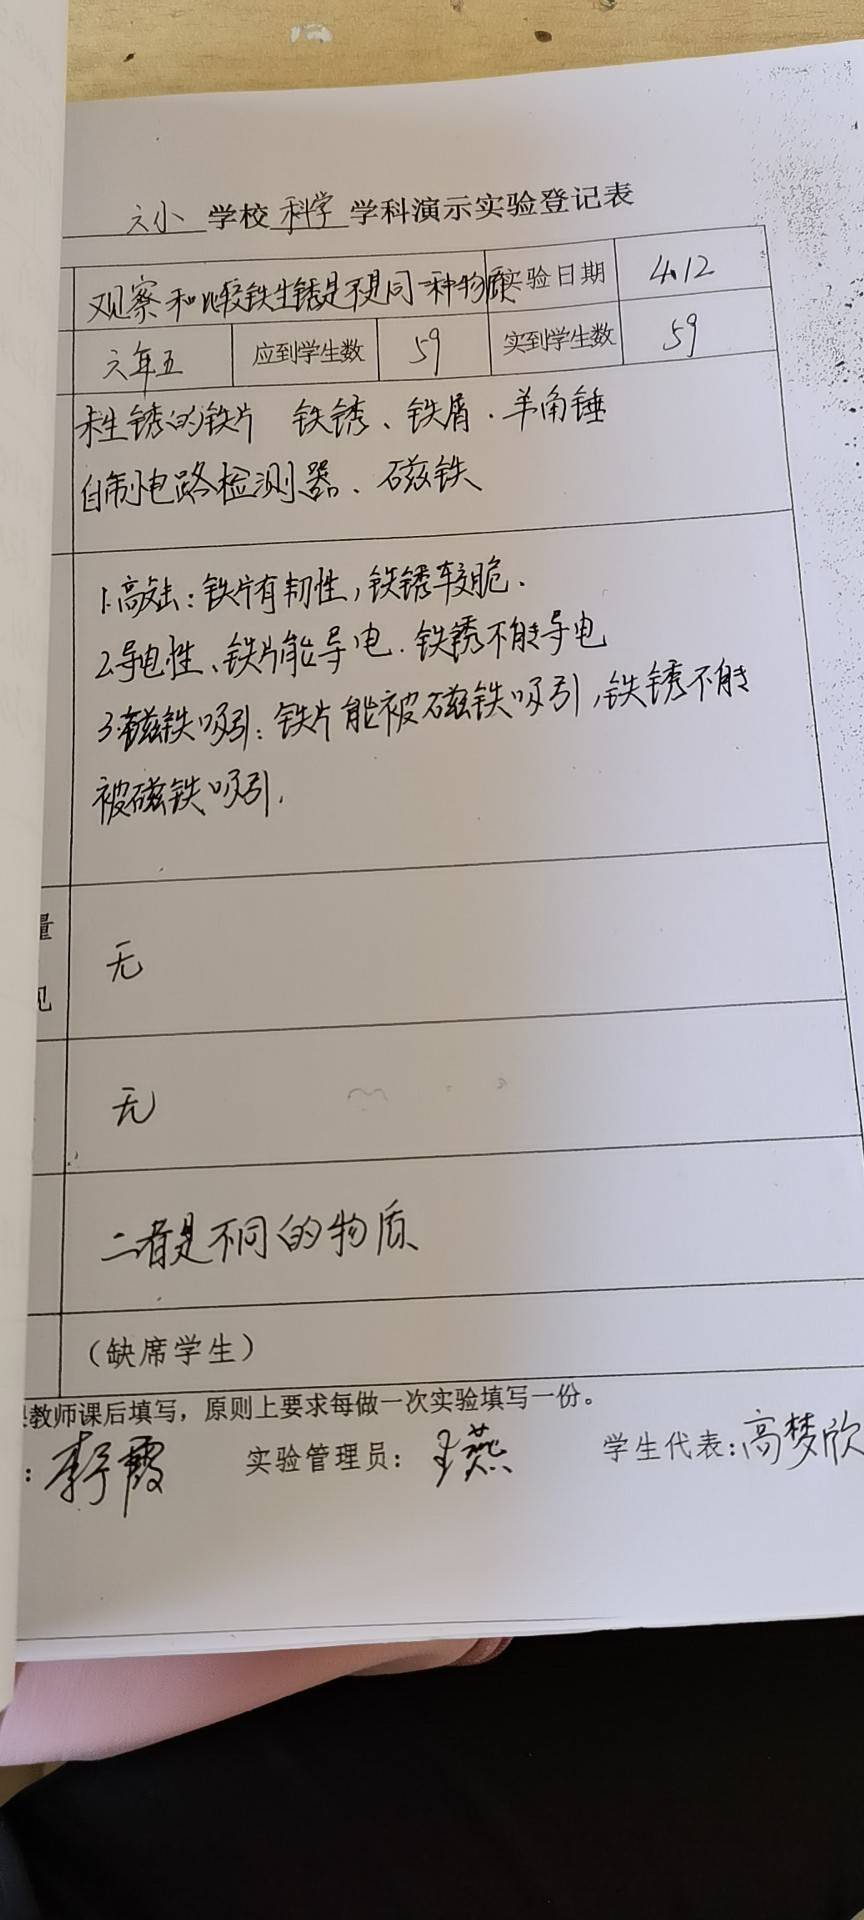 六小 学校 科学 学科演示实验登记表
观察和比较铁生锈是不是同一种物质 实验日期 4.12
六年五 应到学生数 59 实到学生数 59
未生锈的铁片 铁锈、铁屑.羊角锤
自制电路检测器、磁铁
1.高砝:铁片有韧性,铁锈较脆.
2.导电性、铁片能导电.铁锈不能导电
3.磁铁吸引:铁片能被磁铁吸引,铁锈不能
被磁铁吸引.
量
见
无
无
二者是不同的物质、
(缺席学生)
教师课后填写,原则上要求每做一次实验填写一份。
:李霞 实验管理员: 王燕 学生代表:高梦欣